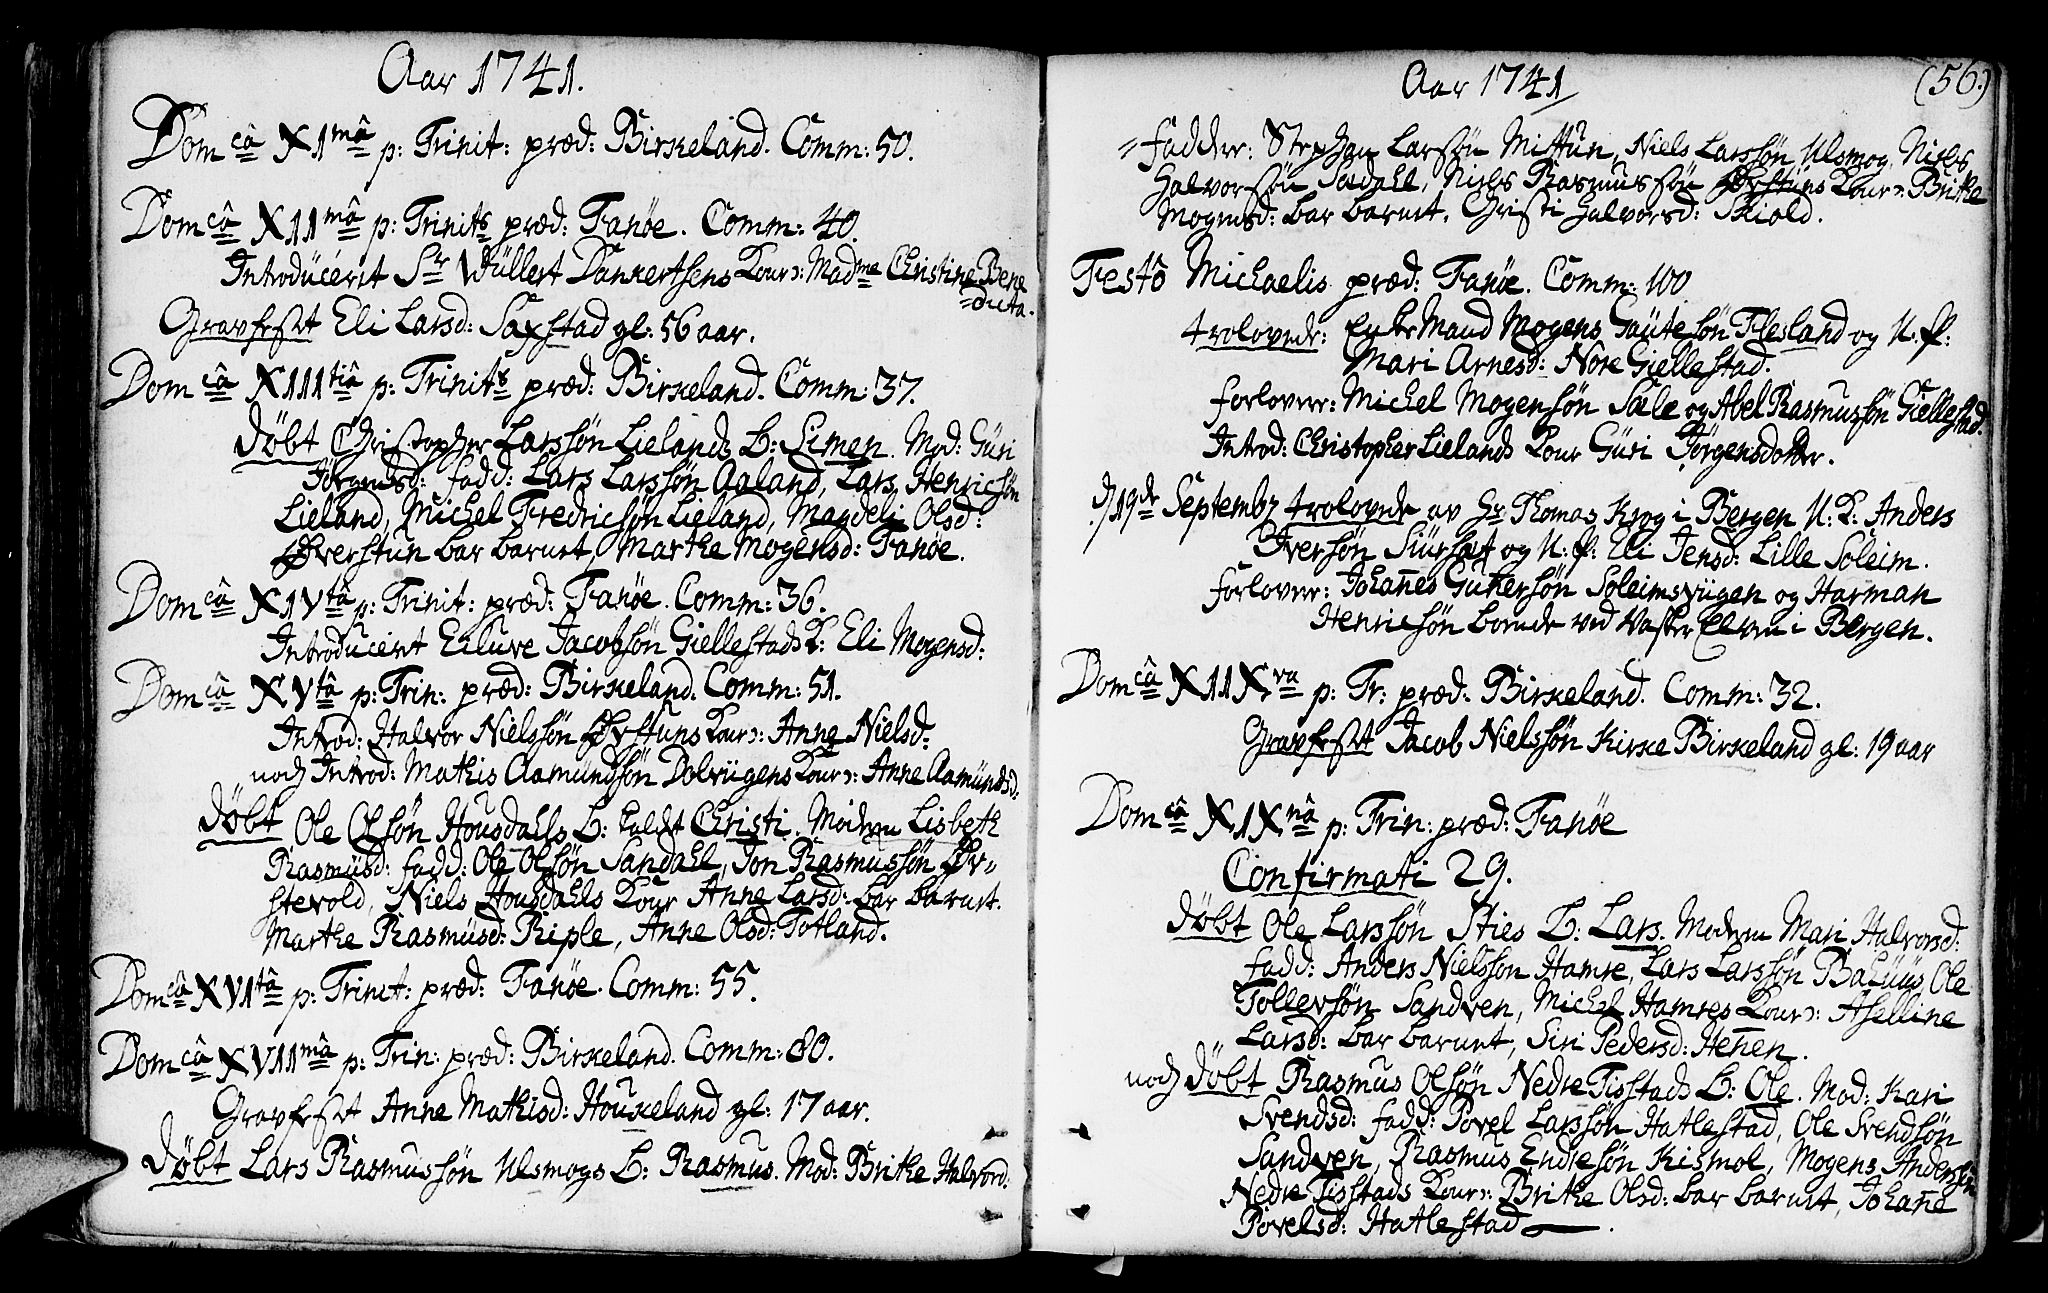 Aar 1741.
Dom câ XImâ p: Trinit: præd: Birkeland. Comm: 50.
Dom câ XIImâ p: Trinits præd: Fanøe. Comm: 40.
Introduceret Sr Wüllert Dankertsens Kone: Madme Christine Bene
=dicta.
Gravfestet Eli Larsd: Saxstad gl: 56 aar.
Dom câ XIIItiâ p: Trinits præd: Birkeland. Comm: 37.
Døbt Christopher Larssøn Lielands B: Simen. Mod: Güri
Jørgensd: fadd: Lars Larssøn Aaland, Lars Henricsøn
Lieland, Michel Fredricsøn Lieland, Magdeli Olsd:
Øverstun bar barnet, Marthe Mogensd: Fanøe.
Dom câ XIVtâ p: Trinit: præd: Fanøe. Comm: 36.
Introduceret Eiluve Jacobsøn Giellestads K: Eli Mogensd:
Dom câ XVtâ p: Trin: præd: Birkeland. Comm: 51.
Introd: Halvor Nielssøn Øvstuns Kone: Anne Nielsd:
noch Introd: Mathis Aamundsøn Dolviigens Kone: Anne Aamündsd:
Døbt Ole Olsøn Housdahls B: kaldt Christi. Moderen Lisbeth
Rasmüsd: fadd: Ole Olsøn Sandahl, Jon Rasmussøn Øv=
stevold, Niels Housdahls Kone Anne Larsd: bar barnet.
Marthe Rasmüsd: Riple, Anne Olsd: Totland.
Dom câ XVItâ p: Trinit: præd: Fanøe. Comm: 55.
Dom câ XVIImâ p: Trin: præd: Birkeland. Comm: 80.
Gravfestet Anne Mathisd: Houkeland gl: 17 aar.
Døbt Lars Rasmussøn Ulsmogs B: Rasmus. Mod: Brithe Halvord:
Aar 1741
(56.)
=Faddere: Stephan Larssøn Mittün, Niels Larssøn Ulsmog, Niels
Halvorsøn Sædahl, Niels Rasmussøn Øvstüns Kone: Brithe
Mogensd: bar barnet, Christi Halvorsd: Skiold.
Festo Michaelis præd: Fanøe. Comm: 100
trolovede: Enke Mand Mogens Gautesøn Flesland og U. P:
Mari Arnesd: Nore Giellestad.
forlovere: Michel Mogensøn Sæle og Abel Rasmussøn Giellestad.
Introd: Christopher Lielands Kone Güri Jørgensdotter.
D/19de Septembr trolovede av Hr Thomas Krog i Bergen U: K: Anders
Iversøn Siursæt og U: P: Eli Jensd: Lille Soleim.
forlovere: Johannes Gutersøn Soleimsviigen og Harman
Henricsøn boende ved Vasker Elven i Bergen.
Dom câ XIIXva p: Tr: præd: Birkeland. Comm: 32.
Gravfestet Jacob Nielssøn Kirke Birkeland gl: 19 aar
Dom câ XIXnâ p: Trin: præd: Fanøe
Confirmati 29.
Døbt Ole Larssøn Sties B: Lars. Moderen Mari Halvorsd:
fadd: Anders Nielsson Hamre, Lars Larssøn Bahuüs, Ole
Tollevsøn Sandven, Michel Hamres Kone: Aselline
Larsd: bar barnet, Siri Pedersd: Hennen.
noch Døbt Rasmus Olsøn Nedre Tisstads B: Ole. Mod: Kari
Svendsd: fadd: Povel Larssøn Hatlestad, Ole Svendsøn
Sandven, Rasmus Endresøn Kismol, Mogens Andersøn
Nedre Tisstads Kone: Brithe Olsd: bar barnet, Johanne
Povelsd: Hatlestad